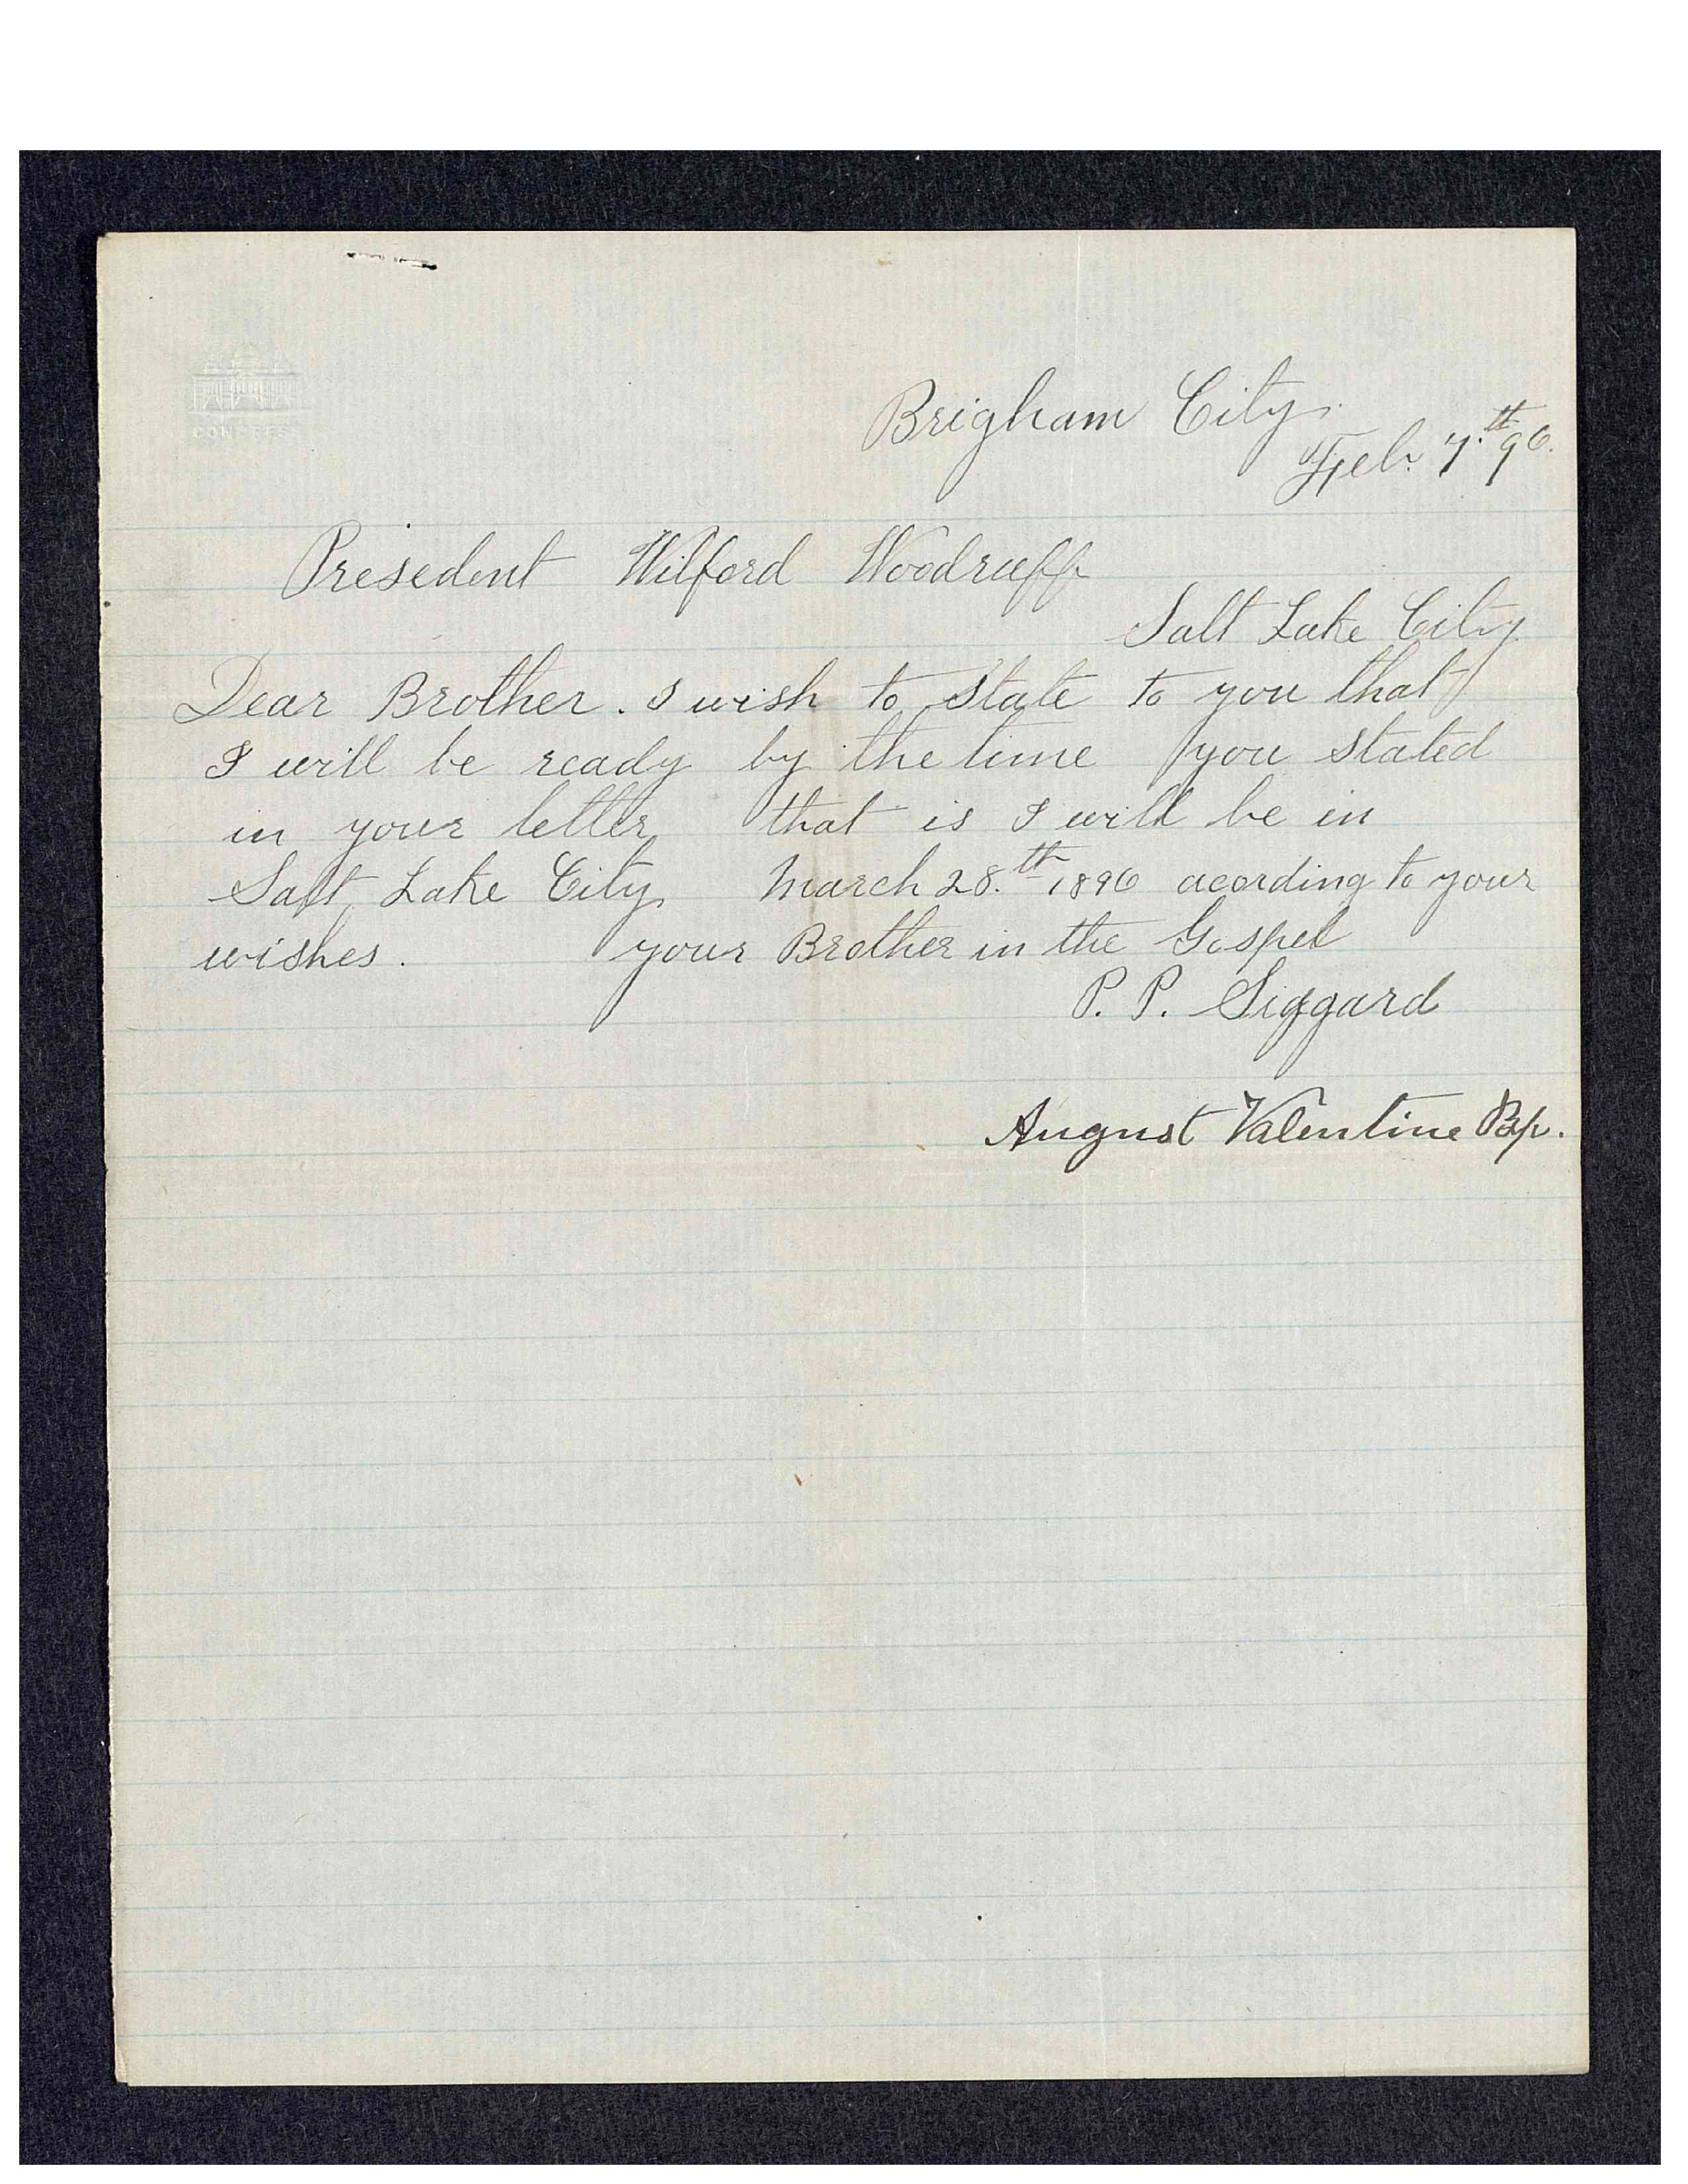 CONGRESS
Brigham City.
Feb. 7.th 96.
Presedent Wilford Woodruff
Salt Lake City
Dear Brother. I wish to state to you that
I will be ready by the time you stated
in your letter, that is I will be in
Salt Lake City March 28.th 1896 acording to your
wishes. your Brother in the Gospel
P. P. Siggard
August Valentine Bp.